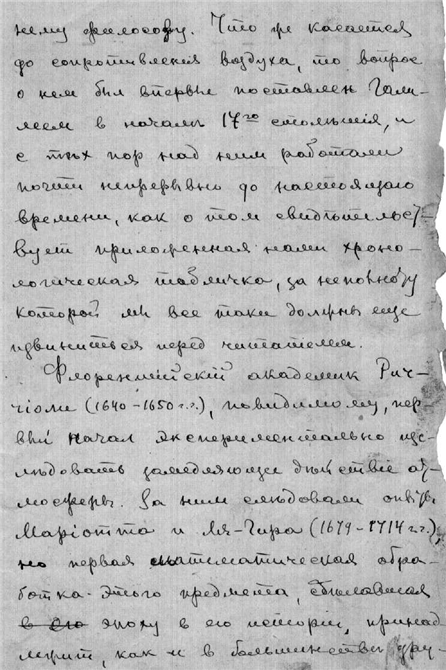 нему философу. Что же касается
до сопротивления воздуха, то вопрос
о нем был впервые поставлен Гали-
леем в началѣ 17го столѣтія, и
с тѣх пор над ним работали
почти непрерывно до настоящаго
времени, как о том свидѣтельст-
вует приложенная нами хроно-
логическая табличка, за неполноту
которой мы все таки должны еще
извиниться перед читателем.
Флорентійскій академик Рич-
чіоли (1640-1650 г.г.), повидимому, пер
вый начал экспериментально изс-
лѣдовать замедляющее дѣйствіе ат
мосферы. За ним слѣдовали опыты
Маріотта и Ля-Гира (1679-1714 г.г.),
но первая математическая обра-
ботка этого предмета, сдѣлавшая
в его эпоху в его исторіи, принад
лежит, как и в большинствѣ дру-